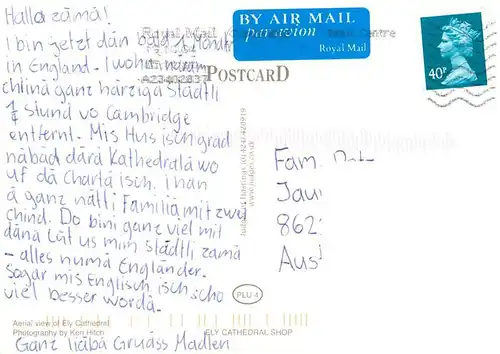 Halla zämä!
I bin jetzt dän bald 1 Monät
in England. I wohn imäm
chliinä ganz härzigä Städtli
1 Stund vo Cambridge
entfernt. Mis Hus isch grad
näbäd därä Kathedralä wo
uf dä Chartä isch. I han
ä ganz nätti Familiä mit zwei
chind. Do bini ganz viel mit
dänä Lüt us mim Städtli zämä
- alles numä Engländer.
Sogar mis Englisch isch scho
viel besser wordä.
Ganz liäbä Gruäss Madlen
Aerial view of Ely Cathedral
Photography by Ken Hitch
Royal Mail
A23402837
POSTCARD
BY AIR MAIL
par avion
Royal Mail
40P
Centre
www.judges.co.uk
PLU 4
ELY CATHEDRAL SHOP
Fam.
862